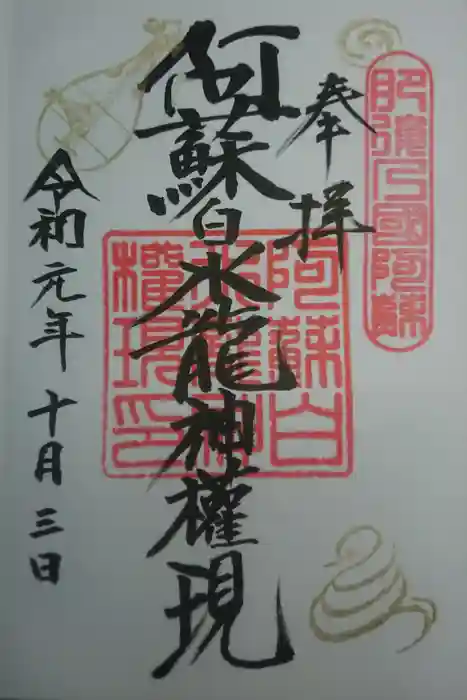 奉拝
肥後乃國阿蘇
阿蘇白水龍神權現
阿蘇白
水龍神
權現印
令和元年十月三日